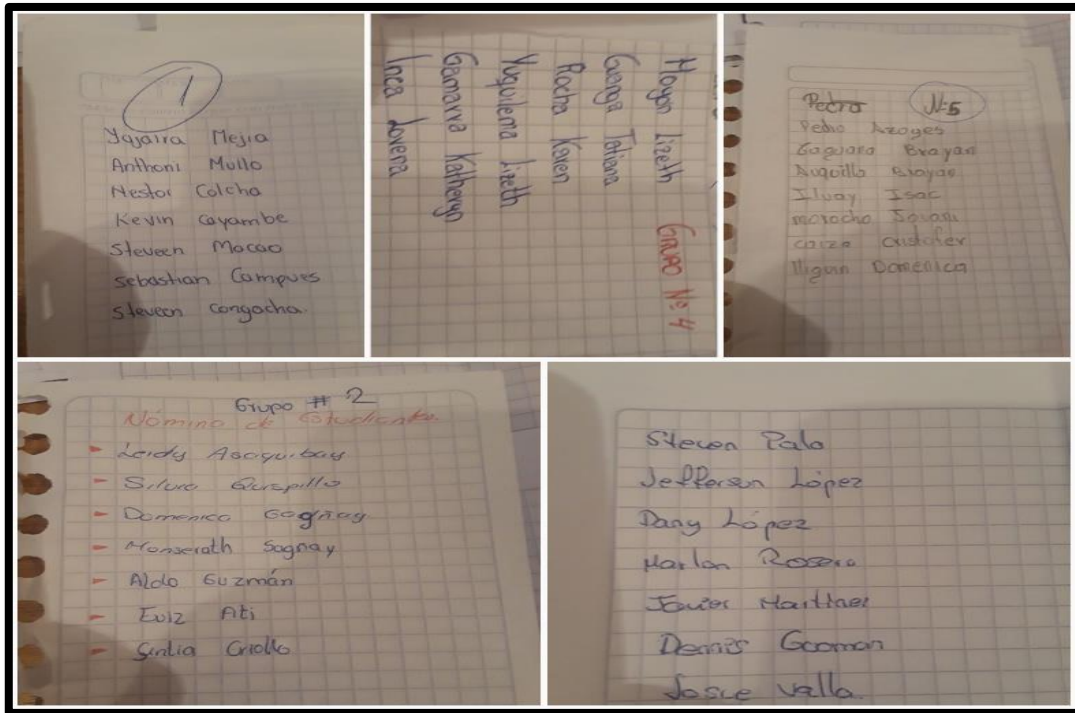 1
Yajaira Mejia
Anthoni Mullo
Nestor Colcha
Kevin Cayambe
Steveen Macao
sebastian Campues
steveen congacha.
GRUPO Nº 4
Hoyon Lizeth
Guanga Tatiana
Rocha Karen
Yuquilema Lizeth
Gamarra Katheryn
Inca Lorena
Pedro
Nº5
Pedro Azoges
Brayan
Brayan
Iluay Isac
morocho Jovani
caiza cristofer
Domenica
Grupo # 2
Nómina de Estudiantes.
Leidy Asaquibay
Quispillo
Domenica Gagñay
Monserath Sagnay
Aldo Guzmán
Ati
Criollo
Steven Palo
Jefferson López
Dany López
Marlon Rosero
Javier
Dennis Guaman
Josue Valla.